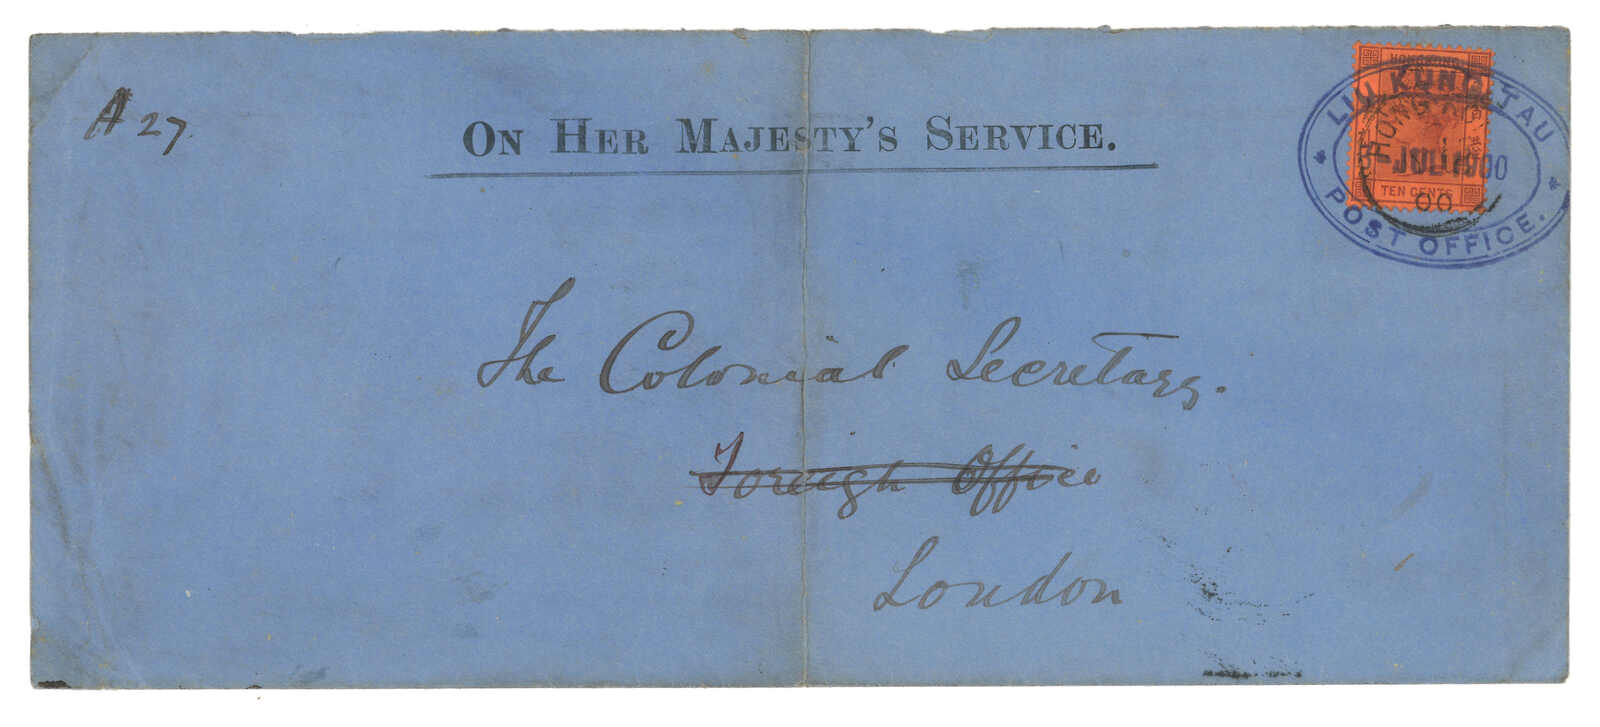 A 27.
ON HER MAJESTY'S SERVICE.
HONG KONG
LIU KUNG TAU
HONG
JUL 1900
TEN CENTS
00
* POST OFFICE. *
The Colonial Secretary.
Foreign Office
London